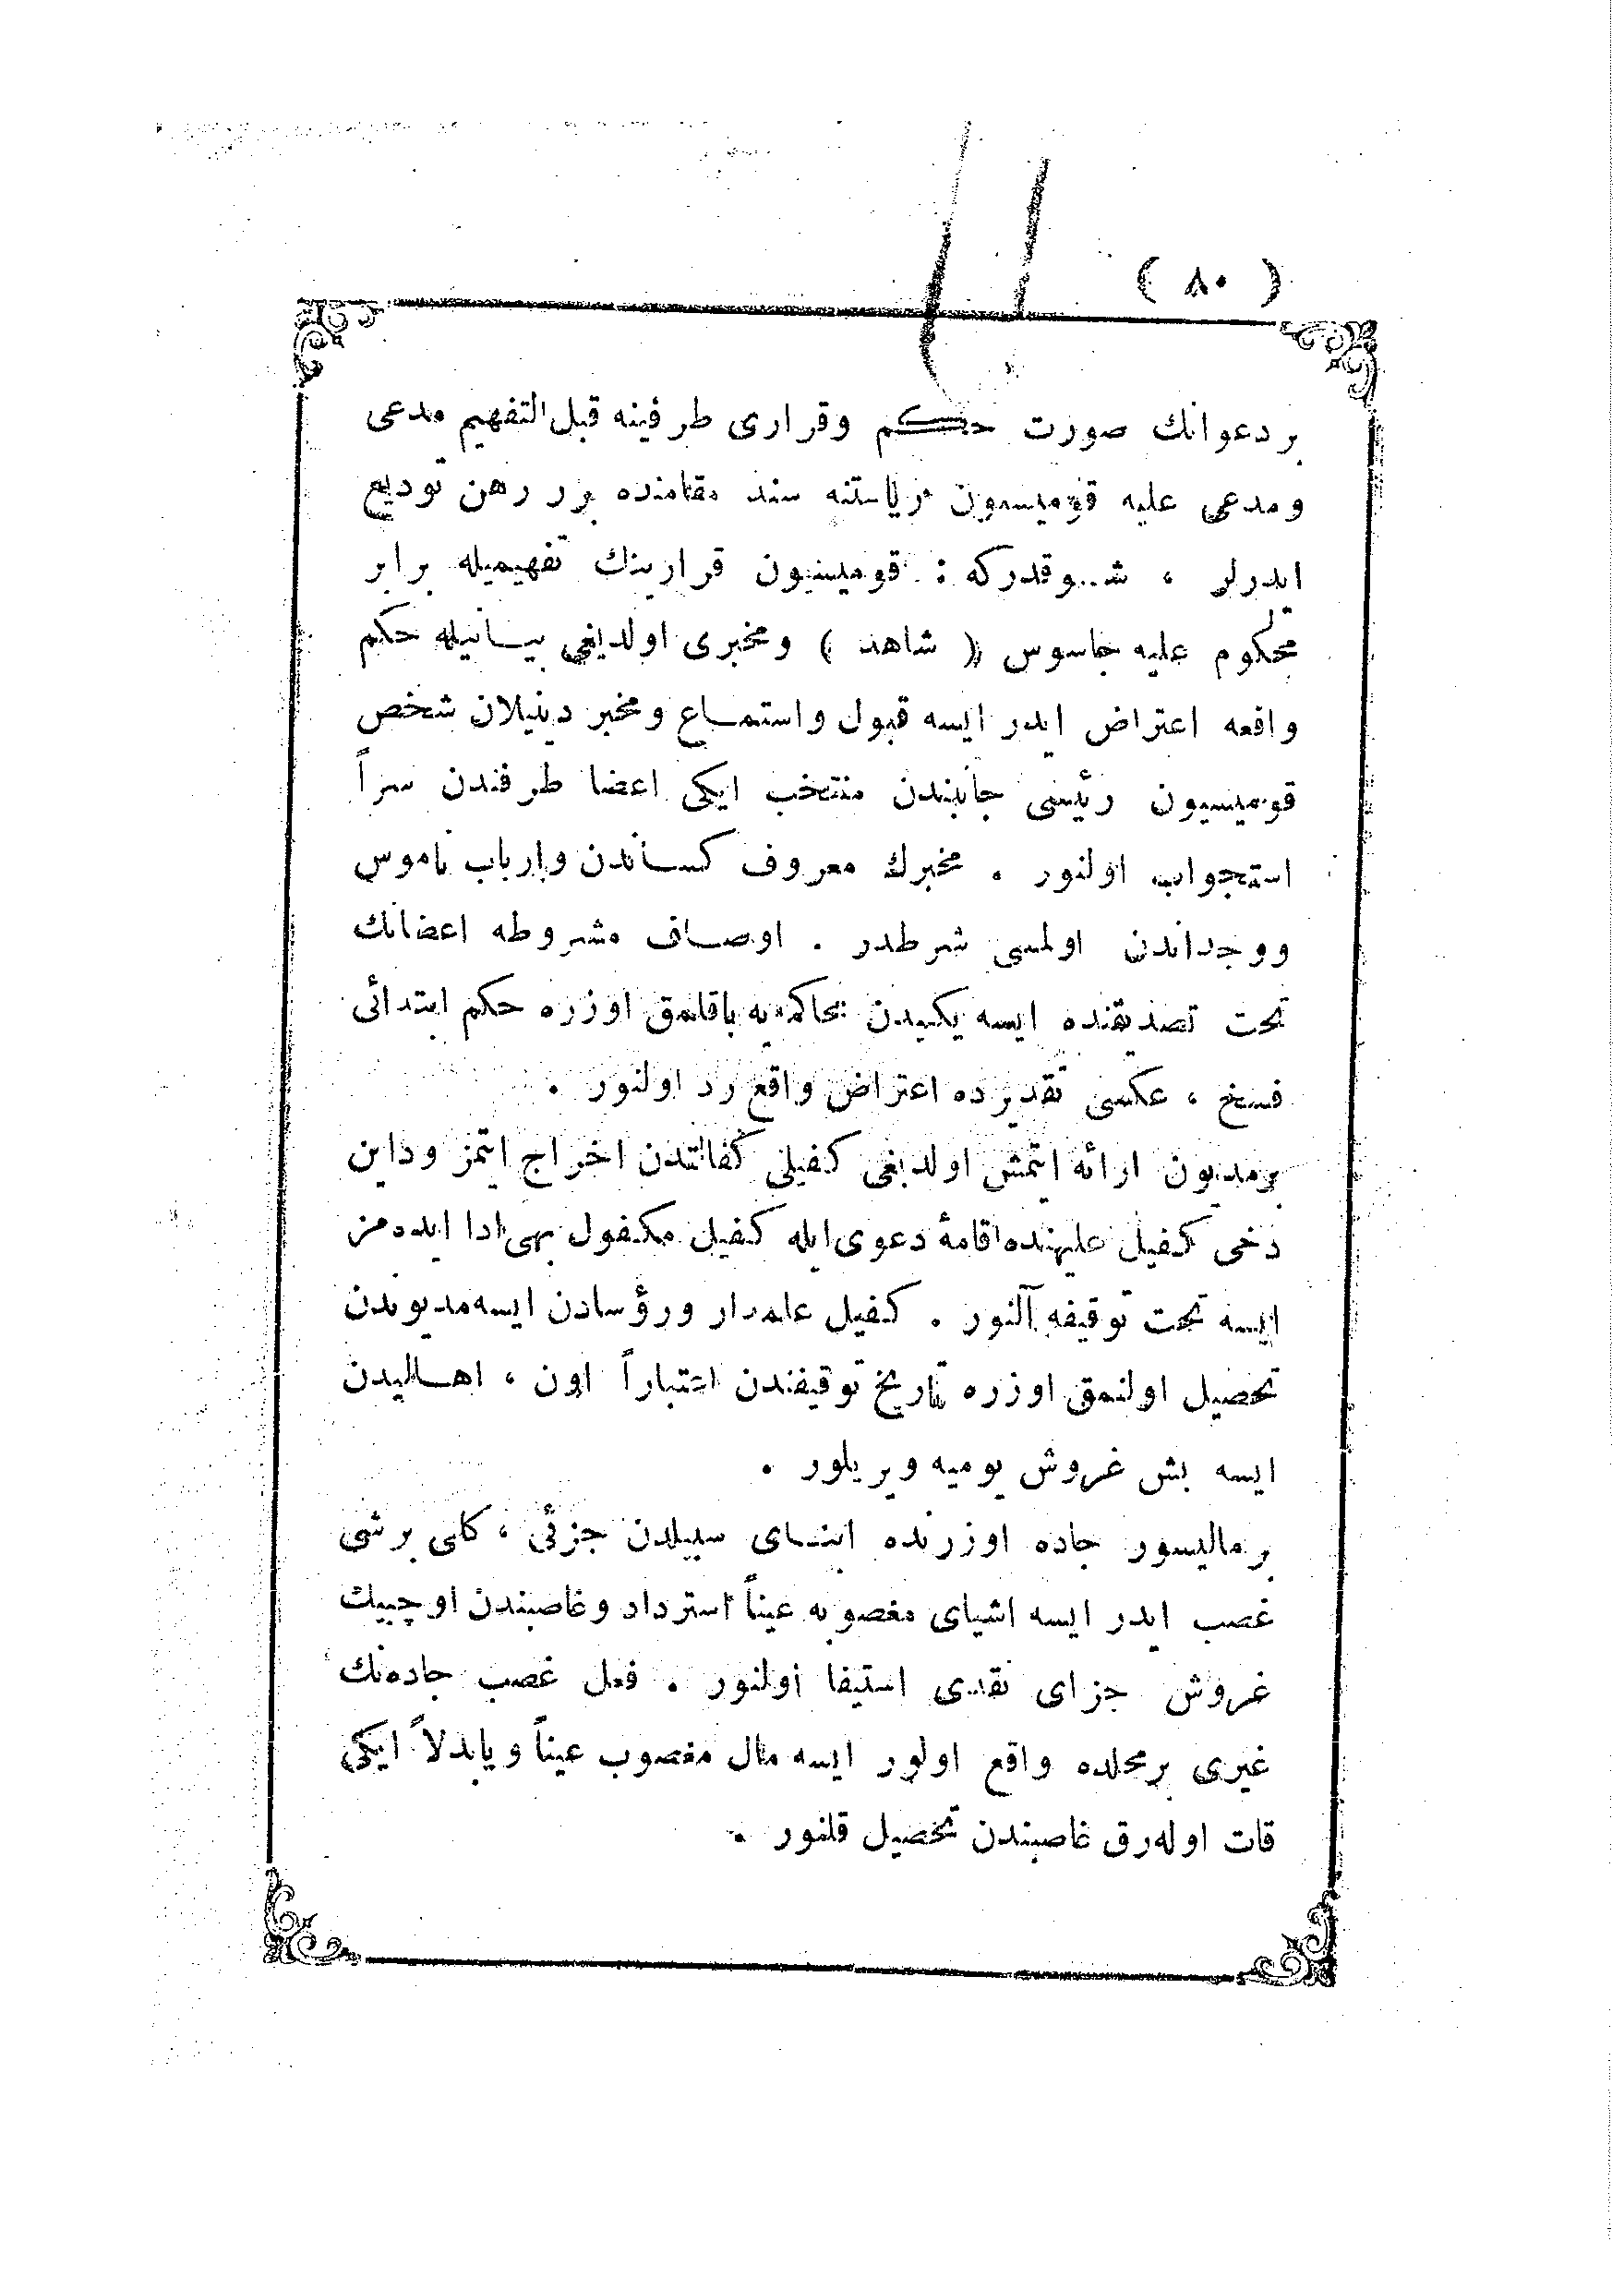 ( ٨٠ )
بر دعوانك صورت حكم وقرارى طرفينه قبل‌التفهيم مدعى
ومدعى عليه قوميسيون رياستنه سند مقامنده برر رهن توديع
ايدرلر ، شوقدركه : قوميسيون قرارينك تفهيميله برابر
محكوم عليه جاسوس ( شاهد ) ومخبرى اولديغى بيانيله حكم
واقعه اعتراض ايدر ايسه قبول واستماع ومخبر دينيلان شخص
قوميسيون رئيسى جانبندن منتخب ايكى اعضا طرفندن سراً
استجواب اولنور . مخبرك معروف كساندن وارباب ناموس
ووجداندن اولمسى شرطدر . اوصاف مشروطه اعضانك
تحت تصديقنده ايسه يكيدن محاكمه‌يه باقلمق اوزره حكم ابتدائى
فسخ ، عكسى تقديرده اعتراض واقع رد اولنور .
برمديون ارائه ايتمش اولديغى كفيلى كفالتدن اخراج ايتمز وداين
دخى كفيل عليهنده اقامهٔ دعوى ايله كفيل مكفول بهى ادا ايده‌مز
ايسه تحت توقيفه آلنور . كفيل علمدار ورؤسادن ايسه مديوندن
تحصيل اولنمق اوزره تاريخ توقيفندن اعتباراً اون ، اهاليدن
ايسه بش غروش يوميه ويريلور .
برماليسور جاده اوزرنده ابناى سبيلدن جزئى ، كلى برشى
غصب ايدر ايسه اشياى مغصوبه عيناً استرداد وغاصبندن اوچبيك
غروش جزاى نقدى استيفا اولنور . فعل غصب جاده‌نك
غيرى برمحلده واقع اولور ايسه مال مغصوب عيناً ويابدلاً ايكى
قات اوله‌رق غاصبندن تحصيل قلنور .